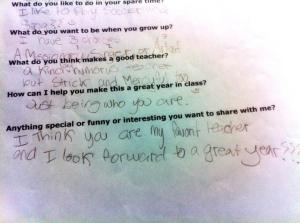 What do you like to do in your spare time?
I like to play soccer
What do you want to be when you grow up?
I have 3
What do you think makes a good teacher?
a kind humorous teacher
but Strict and
How can I help you make this a great year in class?
Just being who you are.
Anything special or funny or interesting you want to share with me?
I think you are my favorit teacher
and I look forward to a great year